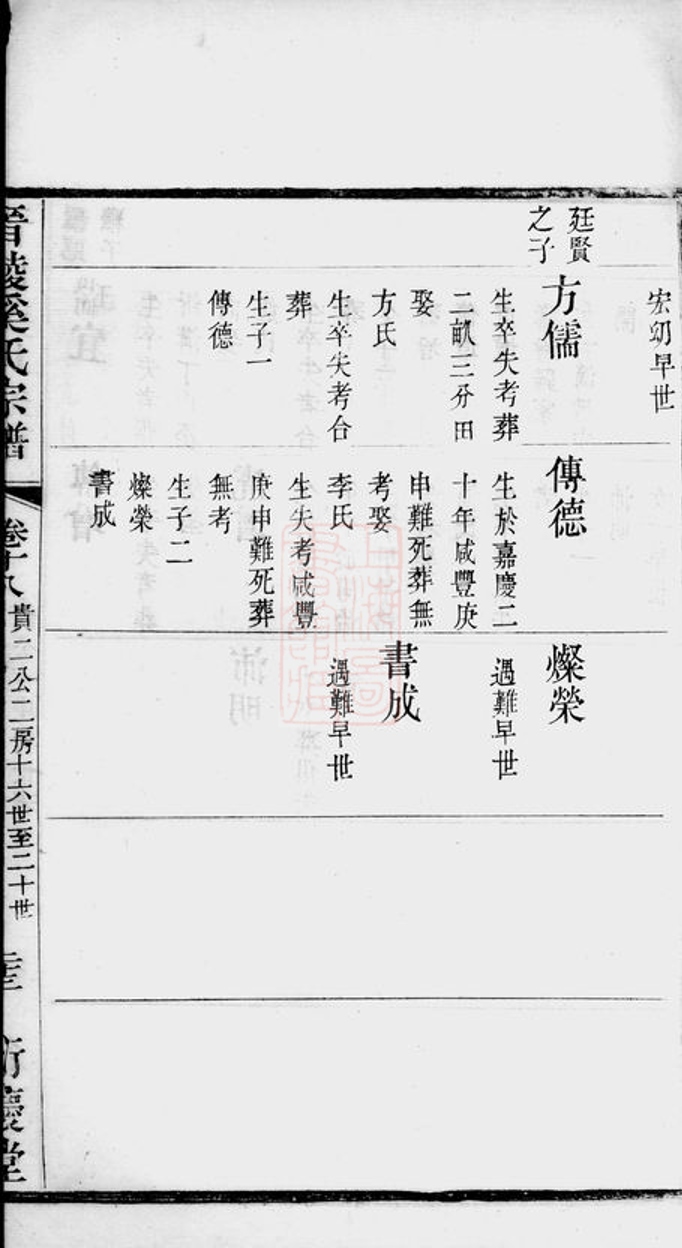 宏初早世
廷賢
之子
方儒
生卒失考葬
二畝三分田
娶
方氏
生卒失考合
葬
生子一
傳德
傳德
生於嘉慶二
十年咸豐庚
申難死葬無
考娶
李氏
生失考咸豐
庚申難死葬
無考
生子二
燦榮
書成
燦榮
遇難早世
書成
遇難早世
晋陵奚氏宗譜
卷十八
貴二公二房十六世至二十世
衍慶堂